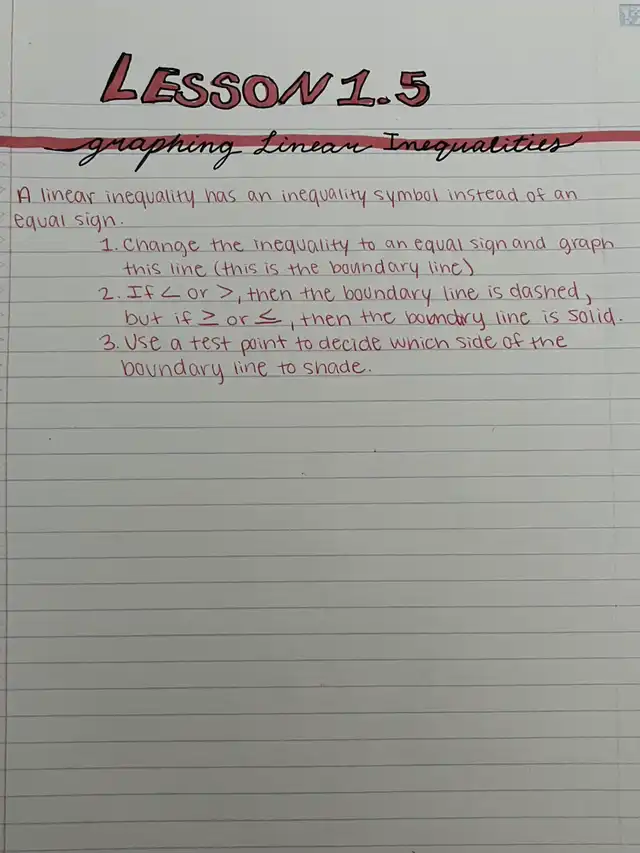 LESSON 1.5
graphing Linear Inequalities
A linear inequality has an inequality symbol instead of an
equal sign.
1. Change the inequality to an equal sign and graph
this line (this is the boundary line)
2. If < or >, then the boundary line is dashed,
but if ≥ or ≤, then the boundary line is solid.
3. Use a test point to decide which side of the
boundary line to shade.